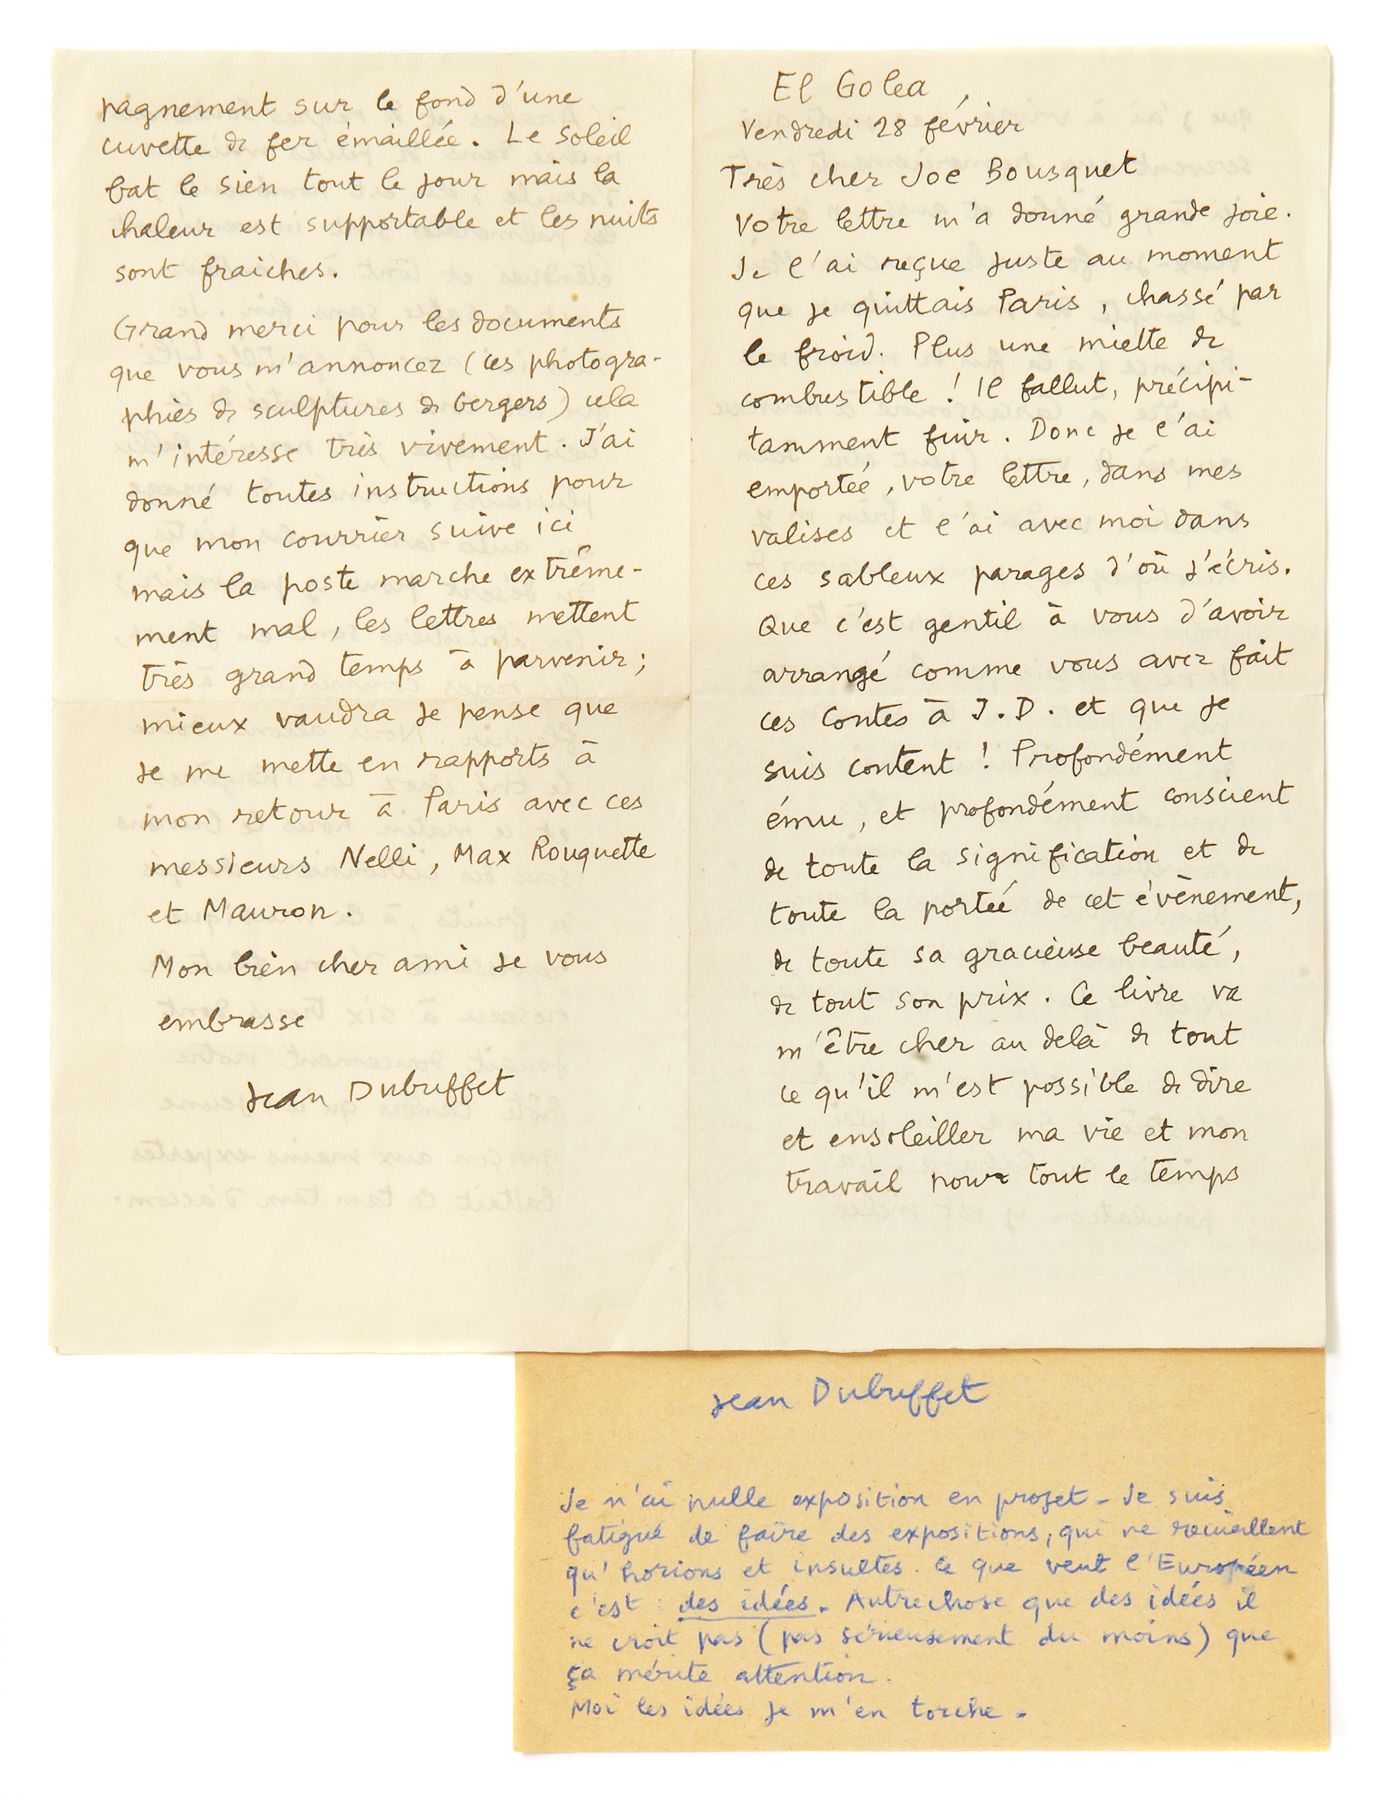 El Golea
Vendredi 28 février
Très cher Joe Bousquet
Votre lettre m'a donné grande joie.
Je l'ai reçue juste au moment
que je quittais Paris, chassé par
le froid. Plus une miette de
combustible ! Il fallut, précipi-
tamment fuir. Donc je l'ai
emportée, votre lettre, dans mes
valises et l'ai avec moi dans
ces sableux parages d'où j'écris.
Que c'est gentil à vous d'avoir
arrangé comme vous avez fait
ces Contes à J.D. et que je
suis content ! Profondément
ému, et profondément conscient
de toute la signification et de
toute la portée de cet évènement,
de toute sa gracieuse beauté,
de tout son prix. Ce livre va
m'être cher au delà de tout
ce qu'il m'est possible de dire
et ensoleiller ma vie et mon
travail pour tout le temps
pagnement sur le fond d'une
cuvette de fer émaillée. Le soleil
bat le sien tout le jour mais la
chaleur est supportable et les nuits
sont fraiches.
Grand merci pour les documents
que vous m'annoncez (ces photogra-
phies de sculptures de bergers) cela
m'intéresse très vivement. J'ai
donné toutes instructions pour
que mon courrier suive ici
mais la poste marche extrême-
ment mal, les lettres mettent
très grand temps à parvenir ;
mieux vaudra je pense que
je me mette en rapports à
mon retour à Paris avec ces
messieurs Nelli, Max Rouquette
et Mauron.
Mon bien cher ami je vous
embrasse
Jean Dubuffet
Jean Dubuffet
Je n'ai nulle exposition en projet - Je suis
fatigué de faire des expositions, qui ne recueillent
qu'horions et insultes. Ce que veut l'Européen
c'est : des idées. Autrechose que des idées il
ne croit pas (pas sérieusement du moins) que
ça mérite attention.
Moi les idées je m'en torche -